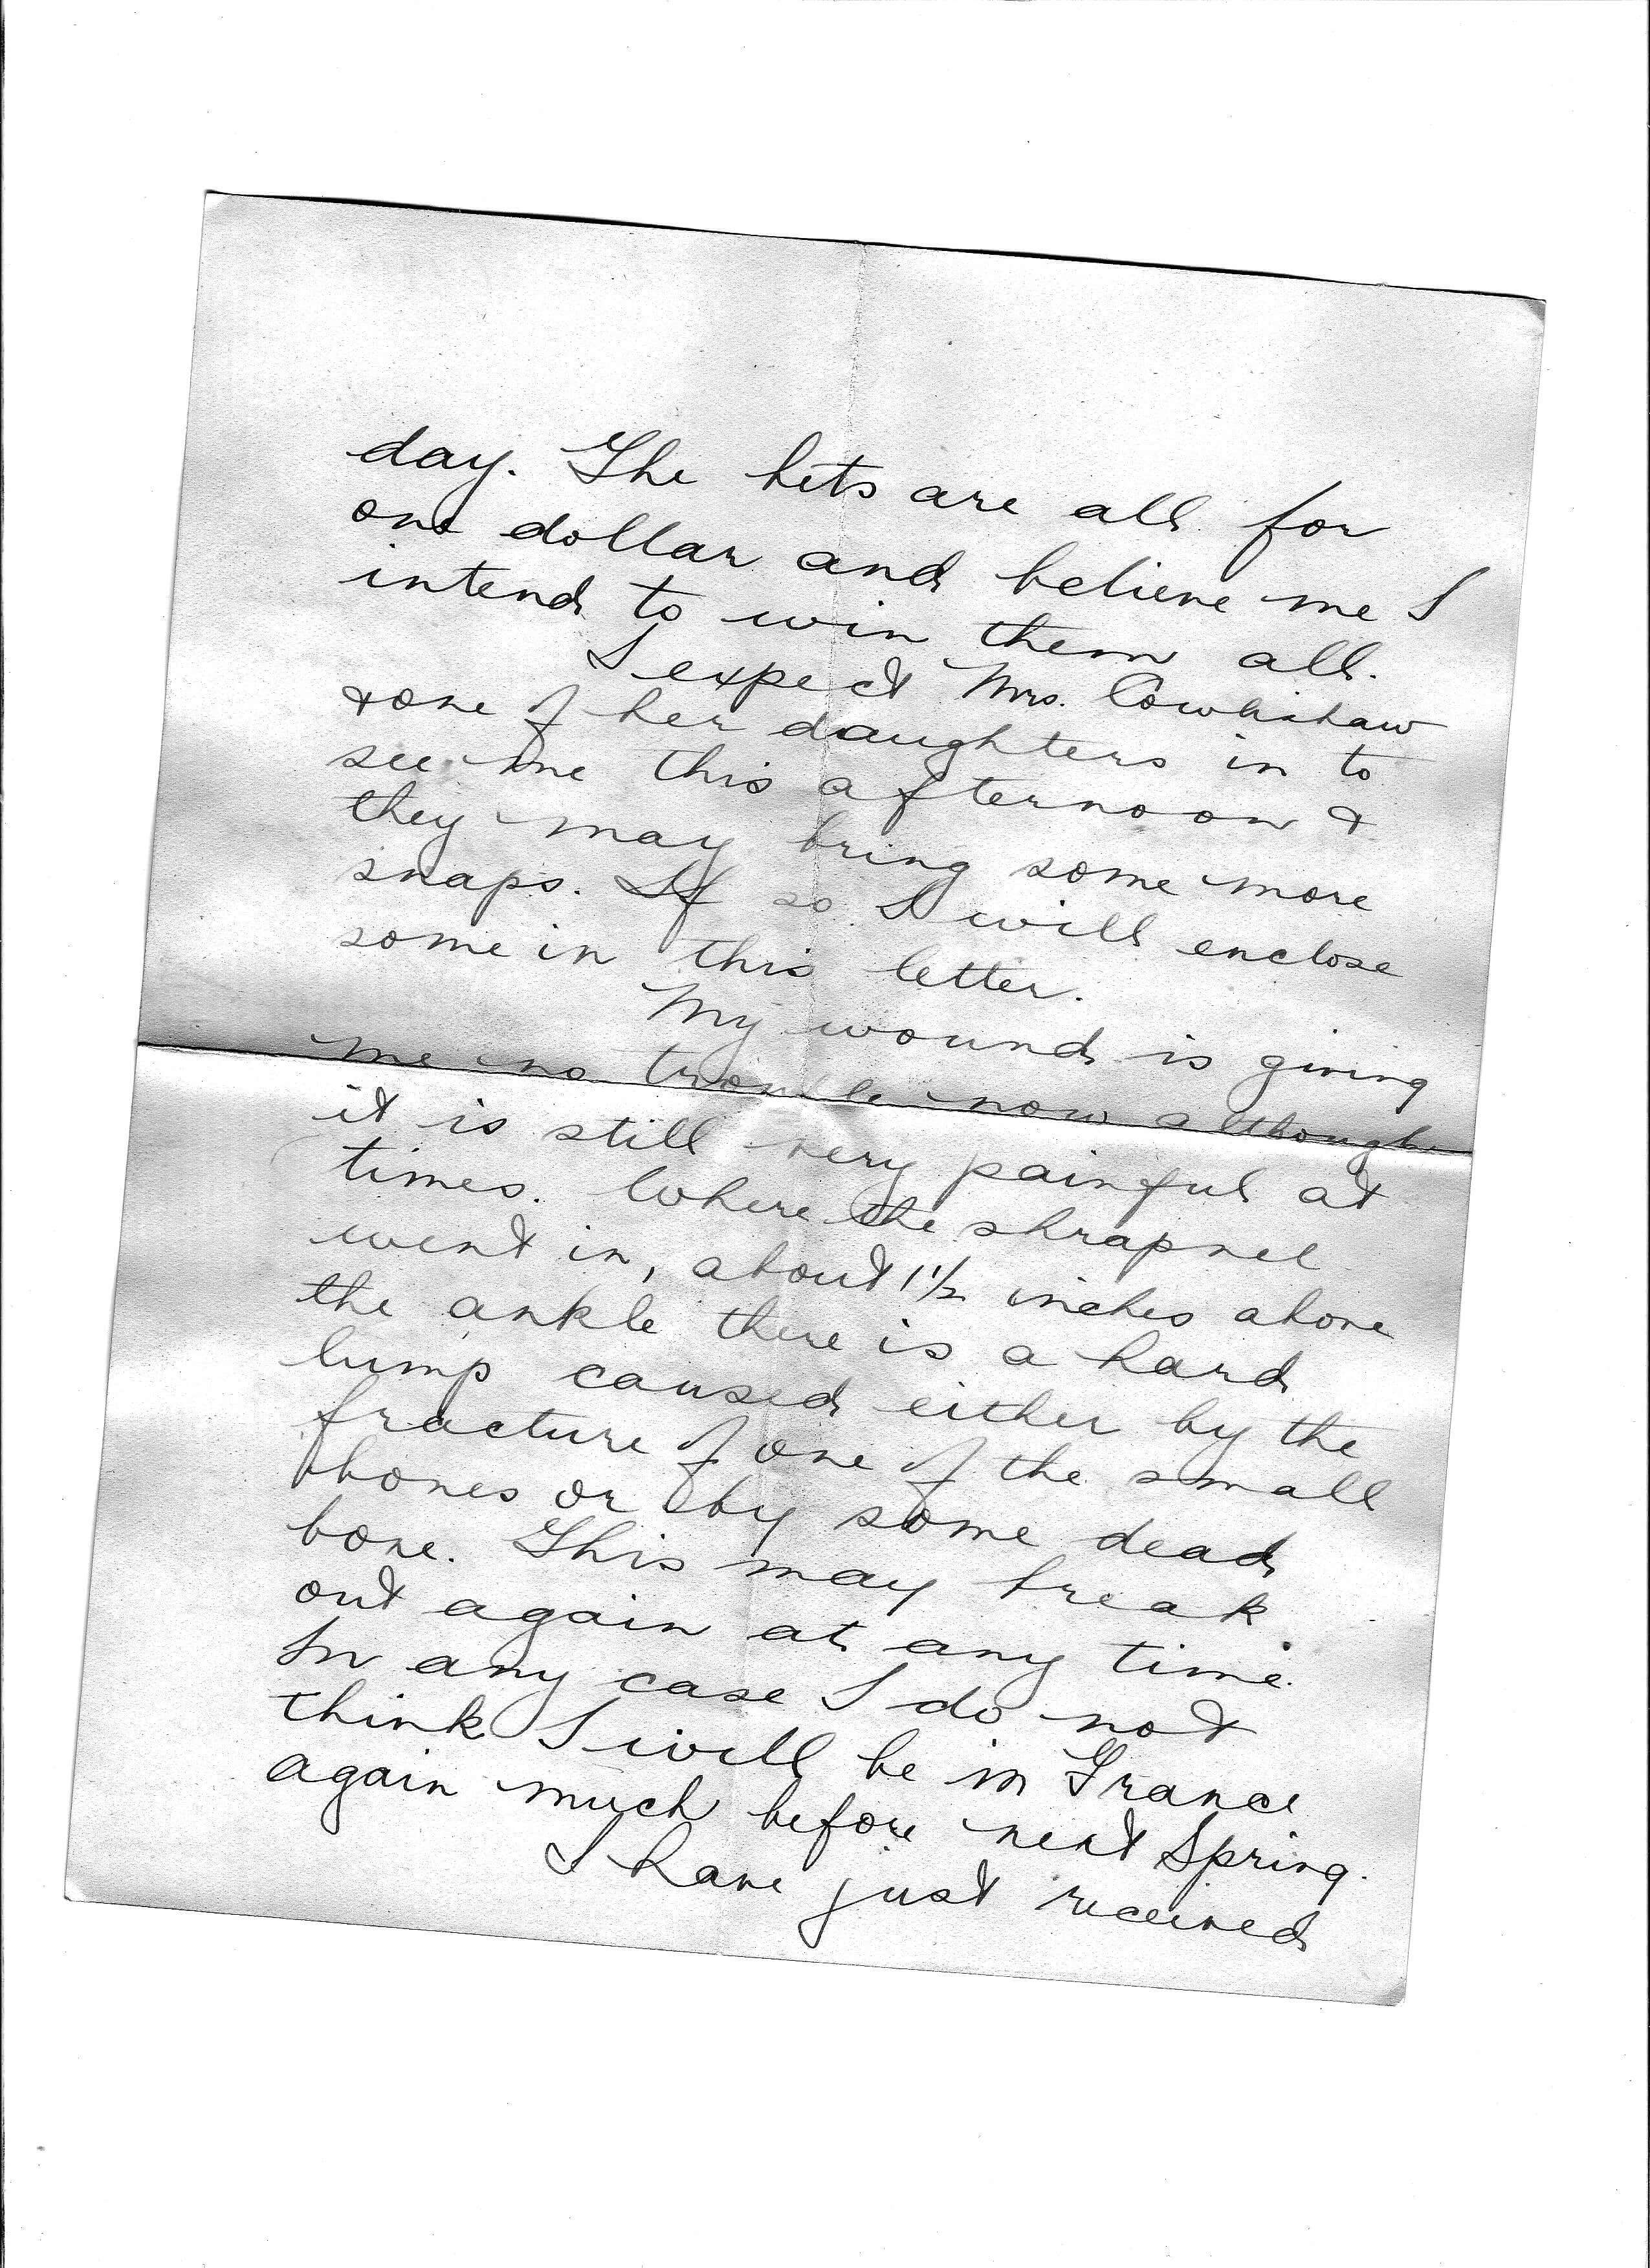 day. The bets are all for
one dollar and believe me I
intend to win them all.
I expect Mrs. Cowlishaw
& one of her daughters in to
see me this afternoon &
they may bring some more
snaps. If so I will enclose
some in this letter.
My wound is giving
me no trouble now although
it is still very painful at
times. Where the shrapnel
went in, about 1 1/2 inches above
the ankle there is a hard
lump caused either by the
fracture of one of the small
bones or by some dead
bone. This may break
out again at any time.
In any case I do not
think I will be in France
again much before next Spring.
I have just received